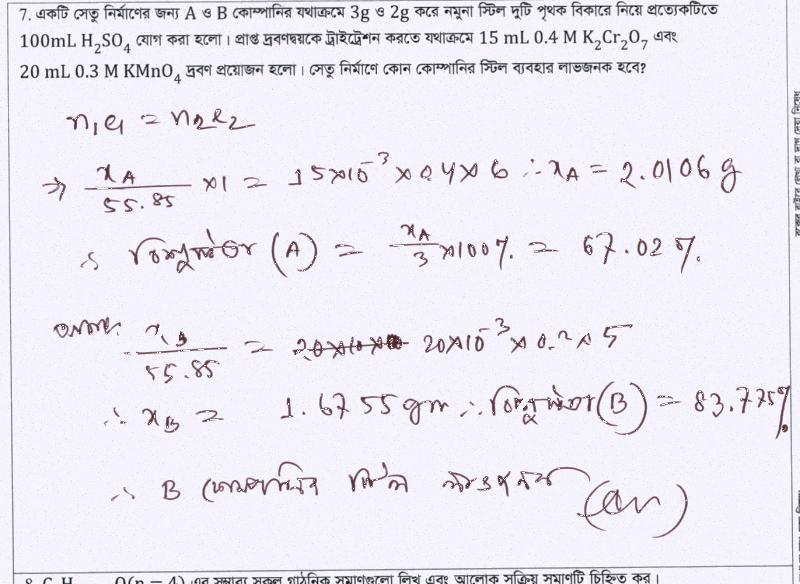 7. একটি সেতু নির্মাণের জন্য A ও B কোম্পানির যথাক্রমে 3g ও 2g করে নমুনা স্টিল দুটি পৃথক বিকারে নিয়ে প্রত্যেকটিতে
100mL H₂SO₄ যোগ করা হলো। প্রাপ্ত দ্রবণদ্বয়কে টাইট্রেশন করতে যথাক্রমে 15 mL 0.4 M K₂Cr₂O₇ এবং
20 mL 0.3 M KMnO₄ দ্রবণ প্রয়োজন হলো। সেতু নির্মাণে কোন কোম্পানির স্টিল ব্যবহার লাভজনক হবে?
n₁e₁ = n₂e₂
⇒ x_A/55.85 × 1 = 15×10⁻³ × 0.4 × 6 ∴ x_A = 2.0106 g
∴ বিশুদ্ধতা (A) = x_A/3 × 100% = 67.02 %.
x_B/55.85 = 20×10⁻³ × 0.3 × 5
∴ x_B = 1.6755 gm ∴ বিশুদ্ধতা (B) = 83.775%
∴ B কোম্পানির স্টিল লাভজনক (Ans)